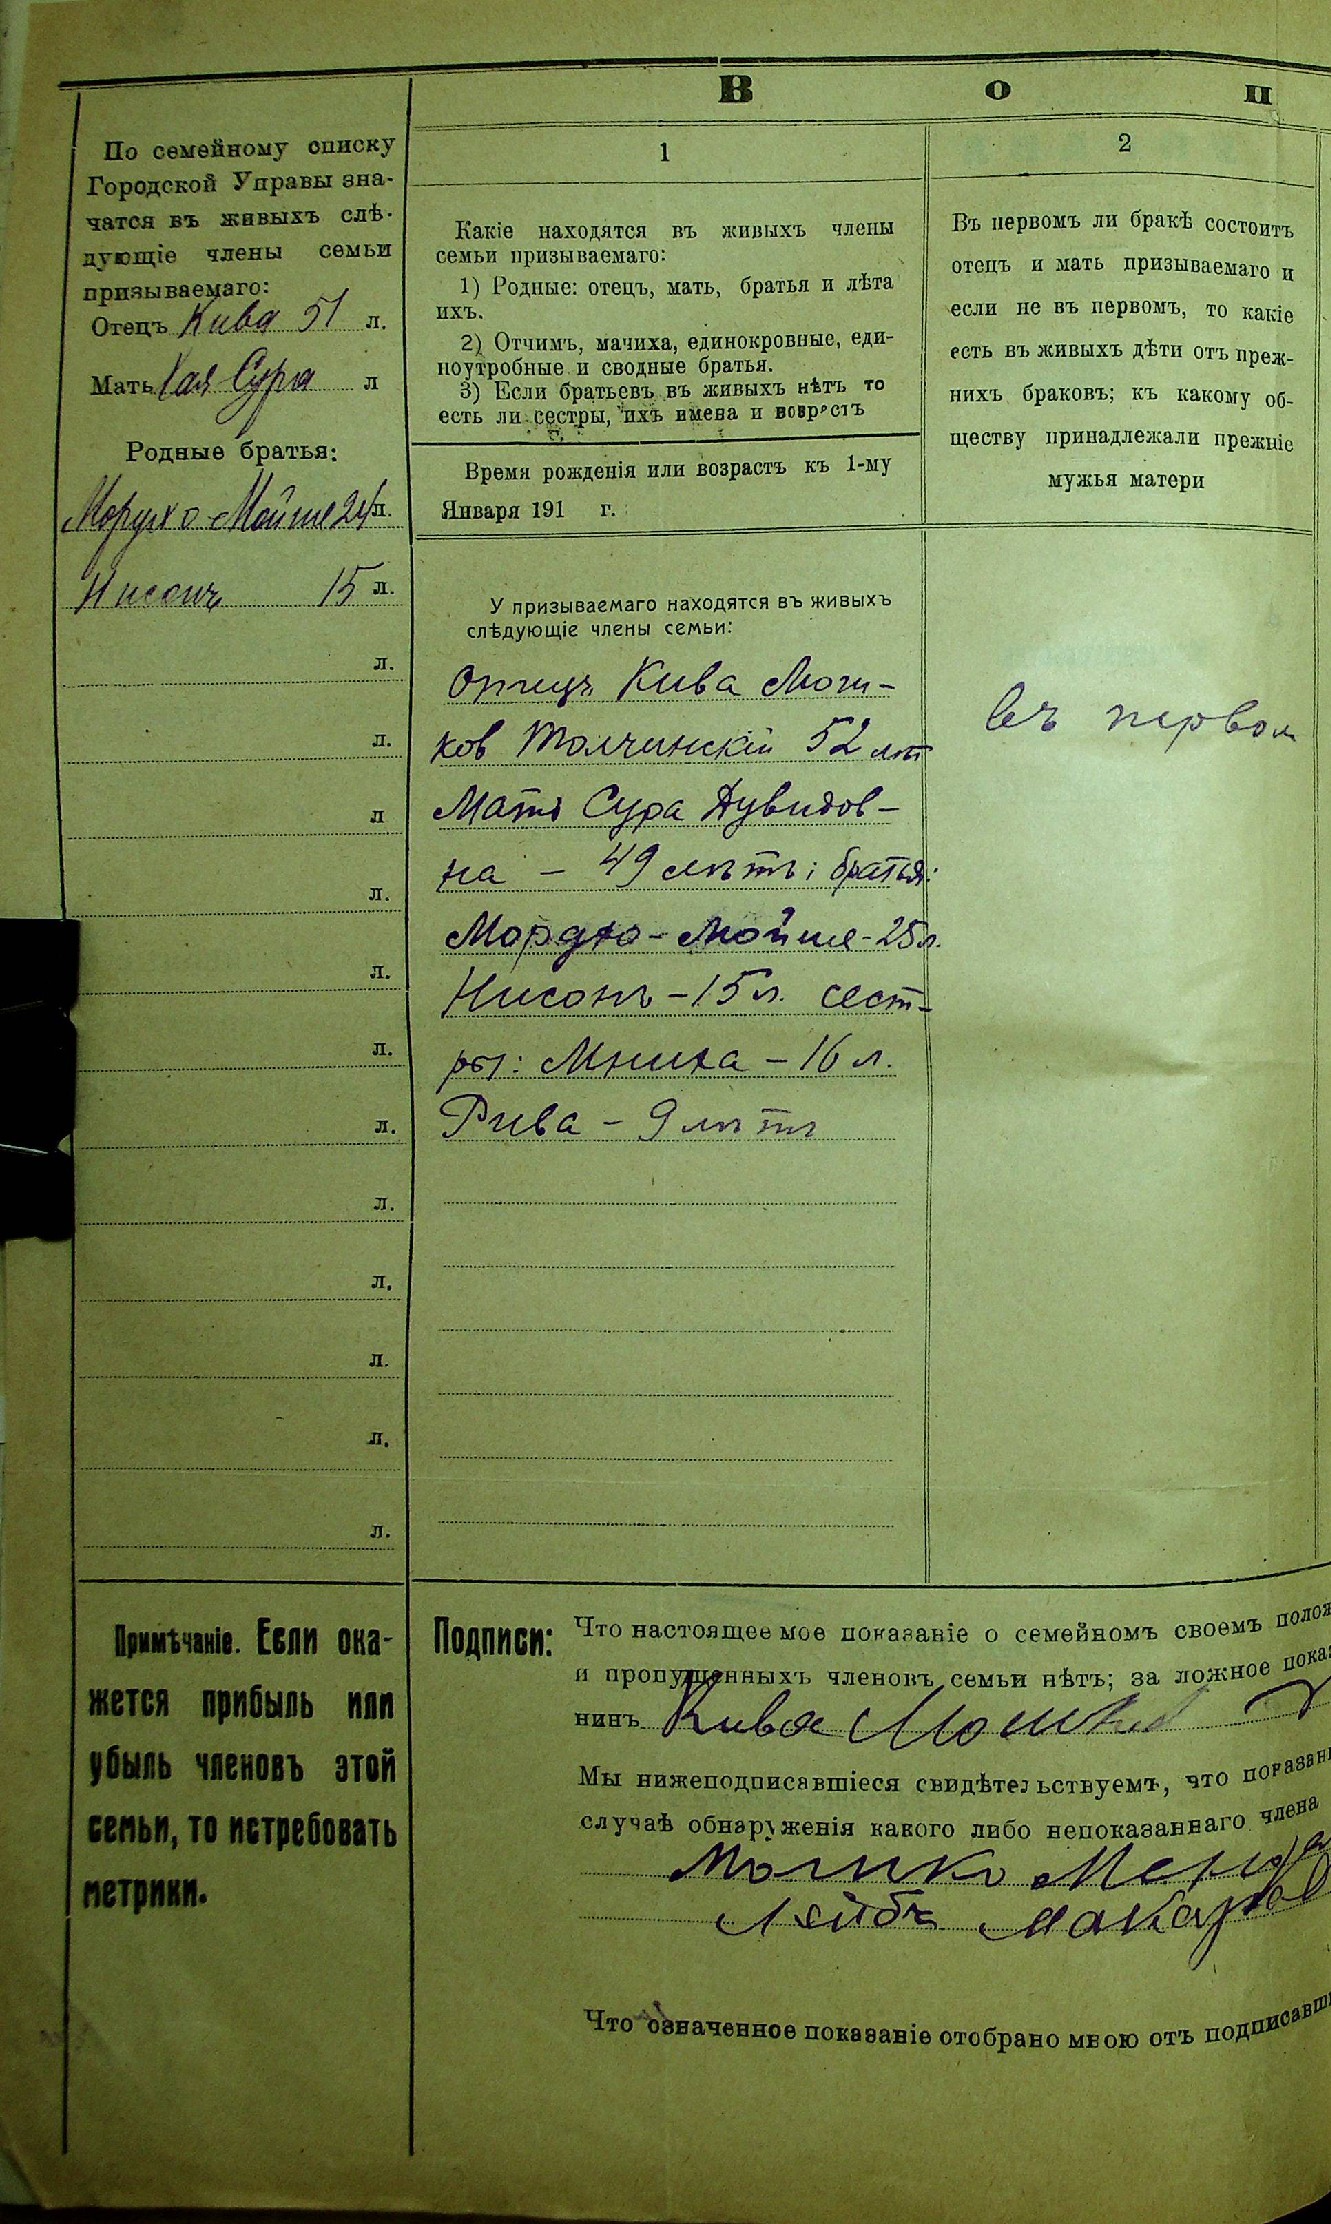 В о п
По семейному списку
Городской Управы зна-
чатся въ живыхъ слѣ-
дующіе члены семьи
призываемаго:
Отецъ Кива 51 л.
Мать Хая-Сура л
Родные братья:
Мордхо-Мойше 24 л.
Нисонъ 15 л.
л.
л.
л
л.
л.
л.
л.
л.
л.
л.
л.
л.
1
Какіе находятся въ живыхъ члены
семьи призываемаго:
1) Родные: отецъ, мать, братья и лѣта
ихъ.
2) Отчимъ, мачиха, единокровные, еди-
ноутробные и сводные братья.
3) Если братьевъ въ живыхъ нѣтъ то
есть ли сестры, ихъ имена и возрастъ
Время рожденія или возрастъ къ 1-му
Января 191 г.
У призываемаго находятся въ живыхъ
слѣдующіе члены семьи:
Отецъ Кива Мош-
ков Толчинскій 52 лѣт
Мать Сура Дувидов-
на - 49 лѣтъ; братья:
Мордхо-Мойше-25л.
Нисонъ-15л. сест-
ры: Мниха-16 л.
Рива - 9 лѣтъ
2
Въ первомъ ли бракѣ состоитъ
отецъ и мать призываемаго и
если не въ первомъ, то какіе
есть въ живыхъ дѣти отъ преж-
нихъ браковъ; къ какому об-
ществу принадлежали прежніе
мужья матери
Въ первом
Примѣчаніе. Если ока-
жется прибыль или
убыль членовъ этой
семьи, то истребовать
метрики.
Подписи: Что настоящее мое показаніе о семейномъ своемъ полож
и пропущенныхъ членовъ семьи нѣтъ; за ложное показ
нинъ Кива Мошков
Мы нижеподписавшіеся свидѣтельствуемъ, что показані
случаѣ обнаруженія какого либо непоказаннаго члена
Мошко
Лейбъ Макаров
Что означенное показаніе отобрано мною отъ подписавши